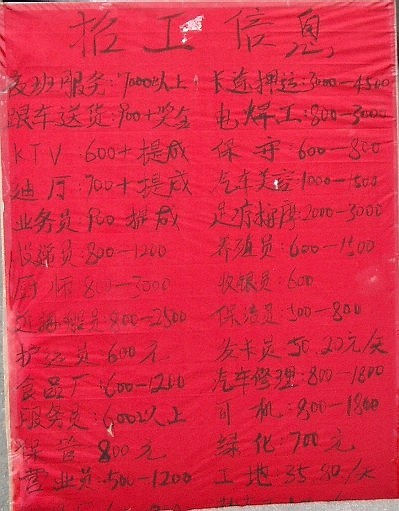 招工信息
夜班服务:7000以上 长途押运:3000—4500
跟车送货:900+奖金 电焊工:800—3000
KTV 600+提成 保安:600—800
迪厅:700+提成 汽车美容1000—1500
业务员:900 提成 足疗按摩:2000—3000
收银员:800—1200 养殖员:600—1500
厨师 800—3000 收银员:600
员:800—2500 保洁员:500—800
员:600元 发卡员50.20元/天
食品厂:600—1200 汽车修理:800—1800
服务员:600以上 司机:800—1800
保管800元 绿化:700元
营业员:500—1200 工地:35.80/天